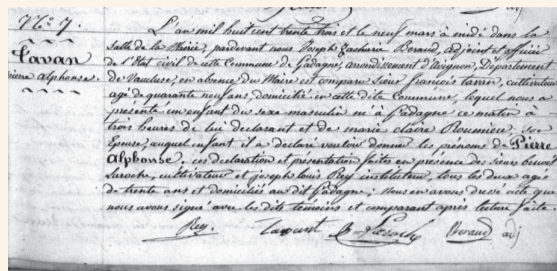 N.° 7.
Tavan
pierre alphonse.
L'an mil huit cent trente trois et le neuf mars à midi dans la
Salle de la Mairie, pardevant nous Joseph Zacharie Beraud, adjoint et officier
de l'Etat civil de cette Commune de Gadagne, arrondissement d'Avignon, Département
de Vaucluse, en absence du Maire est comparu Sieur françois tavan, cultivateur
agé de quarante neuf ans, domicilié en cette dite Commune, lequel nous a
présenté un enfant du sexe masculin né à Gadagne ce matin à
trois heures de lui déclarant et de marie claire Roumieu, Son
Epouse, auquel enfant il a déclaré vouloir donner les prénoms de Pierre
Alphonse; ces déclaration et présentation faites en présence des Sieurs benoit
Laroche, cultivateur et joseph louis Rey instituteur, tous les deux agés
de trente ans et domiciliés au dit Gadagne; Nous en avons dressé acte que
nous avons signé avec les dits témoins et comparant après lecture faite.
Rey. Laroche Beraud adj